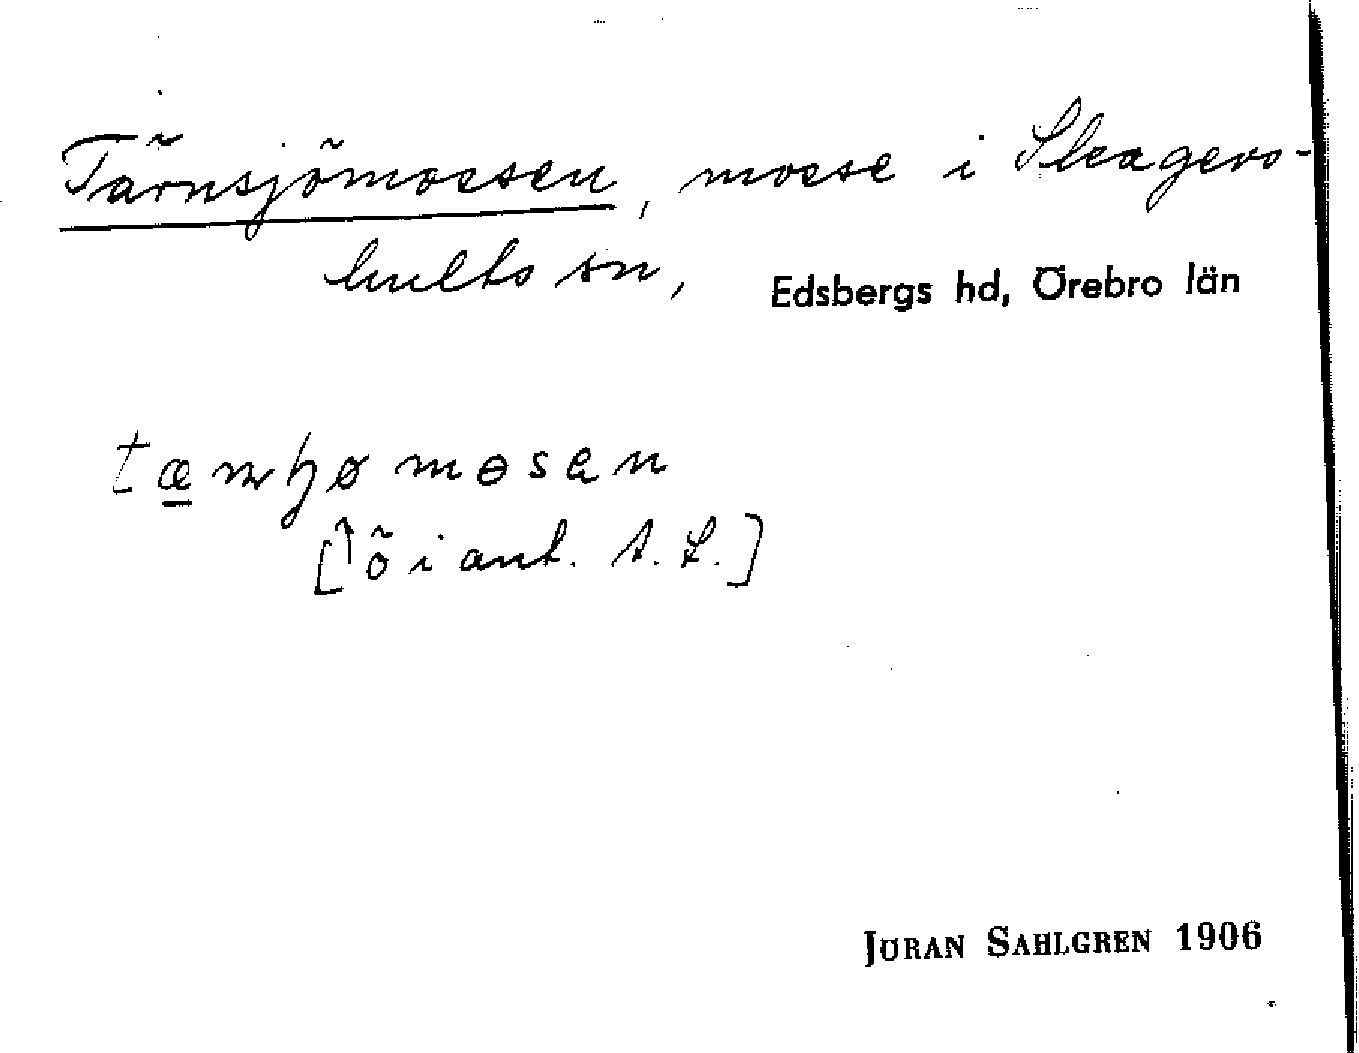 Tärnsjömossen, mosse i Skagers-
hults sn, Edsbergs hd, Örebro län
[↑ ö i ant. A. L.]
JÖRAN SAHLGREN 1906